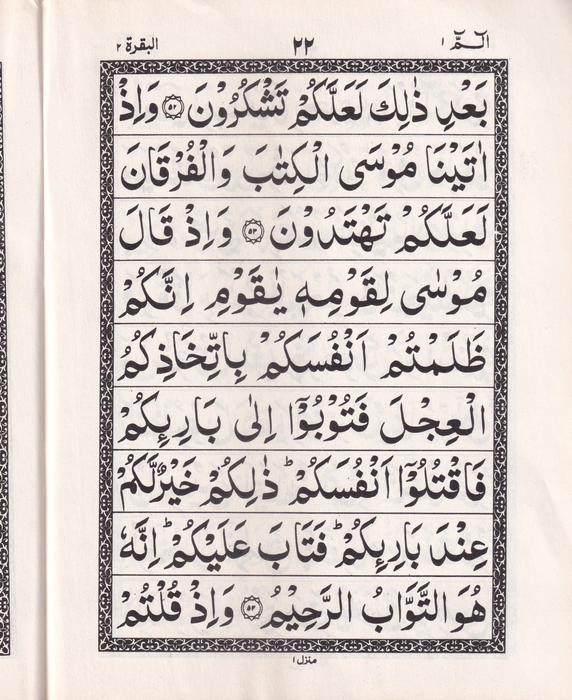 الٓـمّٓ ١ ٢٢ البقرة ٢
بَعۡدِ ذٰلِكَ لَعَلَّكُمۡ تَشۡكُرُوۡنَ ﴿۵۲﴾ وَاِذۡ
اٰتَيۡنَا مُوۡسَى الۡكِتٰبَ وَالۡفُرۡقَانَ
لَعَلَّكُمۡ تَهۡتَدُوۡنَ ﴿۵۳﴾ وَاِذۡ قَالَ
مُوۡسٰى لِقَوۡمِهٖ يٰقَوۡمِ اِنَّكُمۡ
ظَلَمۡتُمۡ اَنۡفُسَكُمۡ بِاتِّخَاذِكُمُ
الۡعِجۡلَ فَتُوۡبُوۡٓا اِلٰى بَارِئِكُمۡ
فَاقۡتُلُوۡٓا اَنۡفُسَكُمۡؕ ذٰلِكُمۡ خَيۡرٌ لَّكُمۡ
عِنۡدَ بَارِئِكُمۡؕ فَتَابَ عَلَيۡكُمۡؕ اِنَّهٗ
هُوَ التَّوَّابُ الرَّحِيۡمُ ﴿۵۴﴾ وَاِذۡ قُلۡتُمۡ
منزل ١